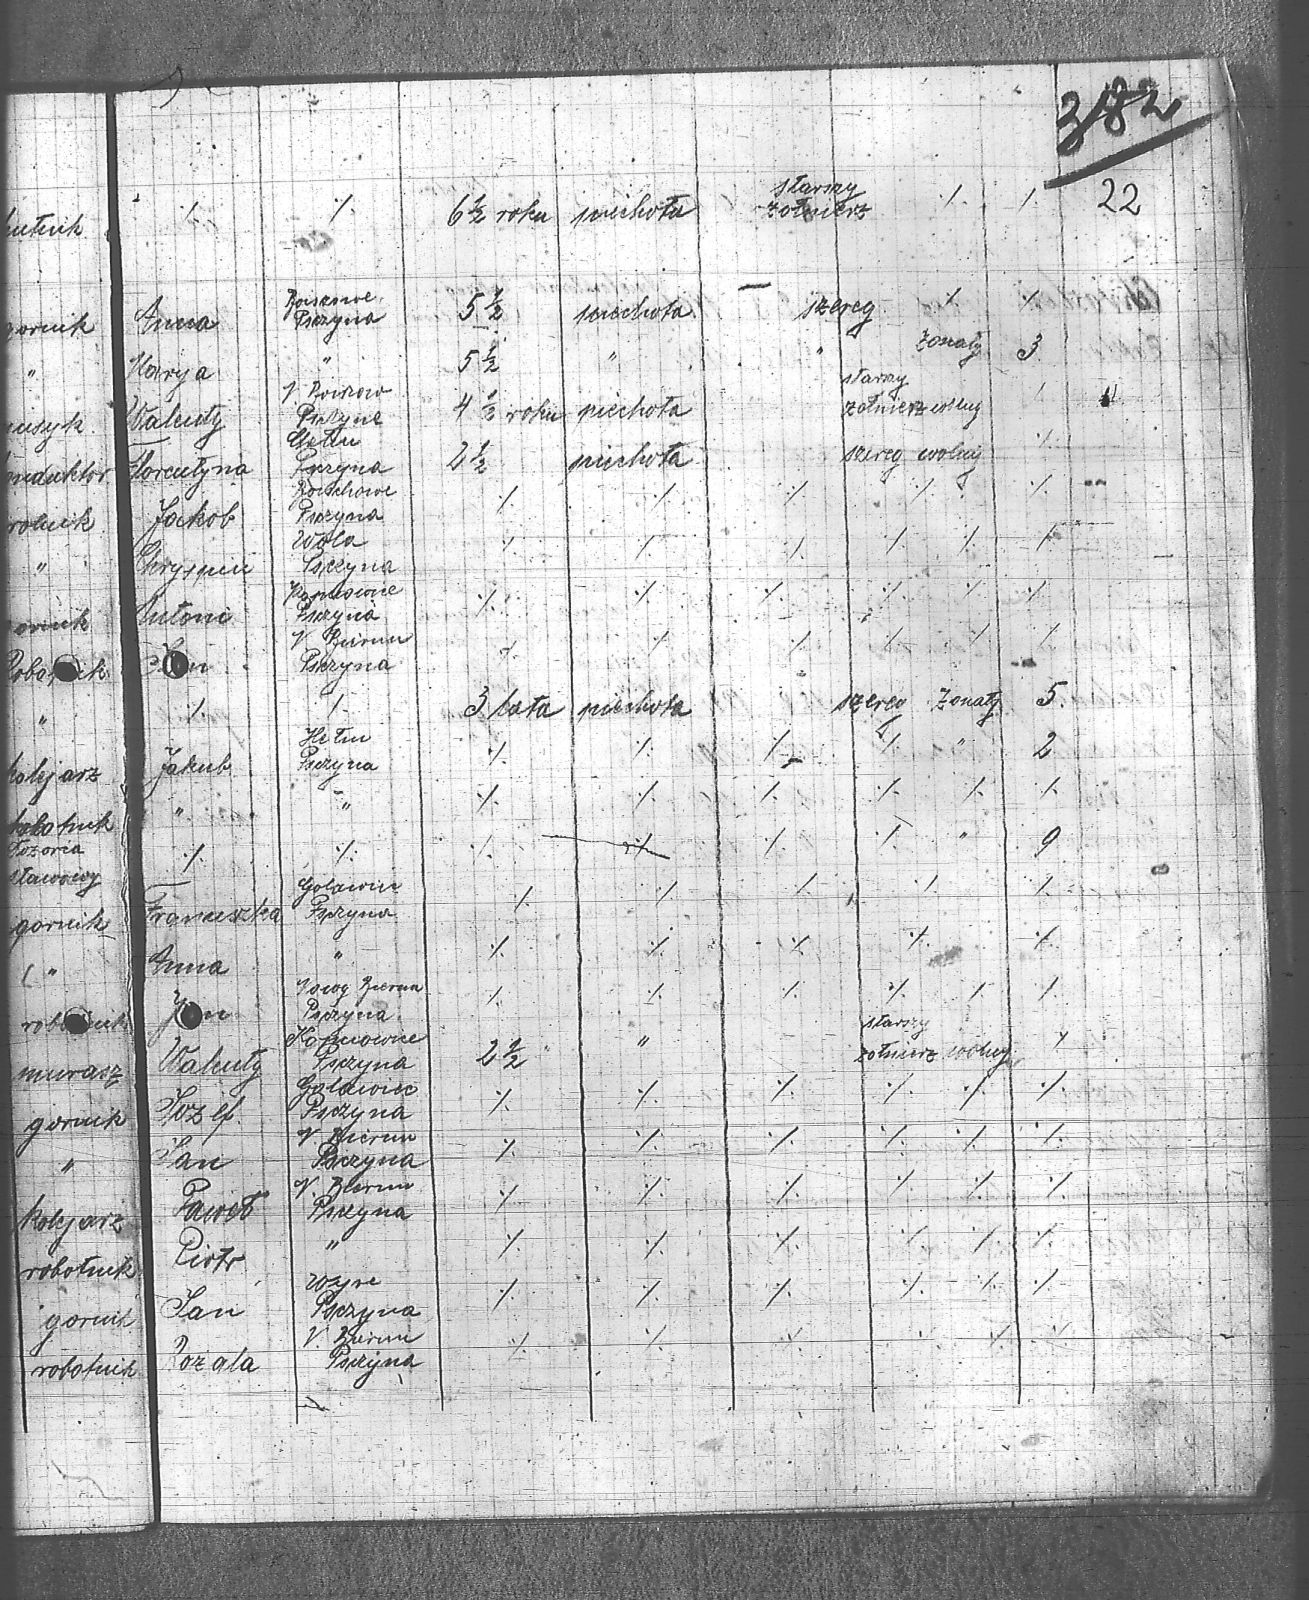 382
22
hutnik ./. ./. 6 1/2 roku piechota starszy żołnierz ./. ./.
gornik Anna Pszczyna 5 1/2 piechota szereg ./. ./.
" Marya " 5 1/2 " " żonaty 3
Walenty Pszczyna 4 1/2 roku piechota starszy żołnierz wolny
konduktor Florentyna Pszczyna 2 1/2 piechota szereg wolny ./.
rolnik Jakob Pszczyna ./. ./. ./. ./. ./.
" Wola Pszczyna ./. ./. ./. ./. ./. ./.
gornik Antoni Pszczyna ./. ./. ./. ./. ./. ./.
Robotnik Jan N Bierun Pszczyna ./. ./. ./. ./. ./. ./.
" ./. ./. 3 lata piechota szereg żonaty 5.
kolejarz Jakub Pszczyna ./. ./. ./. ./. " 2
robotnik " " ./. ./. ./. ./. ./. ./.
dozorca
stawowy ./. ./. ./. ./. ./. ./. " 9
gornik Franciszka Goławiec Pszczyna ./. ./. ./. ./. ./.
" Anna " ./. ./. ./. ./. ./.
robotnik Jan Nowy Bierun Pszczyna ./. ./. ./. ./. ./. ./.
murarz Walenty Kopciowice Pszczyna 2 1/2 " " starszy żołnierz wolny
gornik Jozef Goławiec Pszczyna ./. ./. ./. ./. ./. ./.
" Jan N Bierun Pszczyna ./. ./. ./. ./. ./. ./.
kolejarz Paweł N Bierun Pszczyna ./. ./. ./. ./. ./. ./.
robotnik Piotr " ./. ./. ./. ./. ./. ./.
gornik Jan Pszczyna ./. ./. ./. ./. ./. ./.
robotnik Rozala N. Bierun Pszczyna ./. ./. ./. ./. ./. ./.